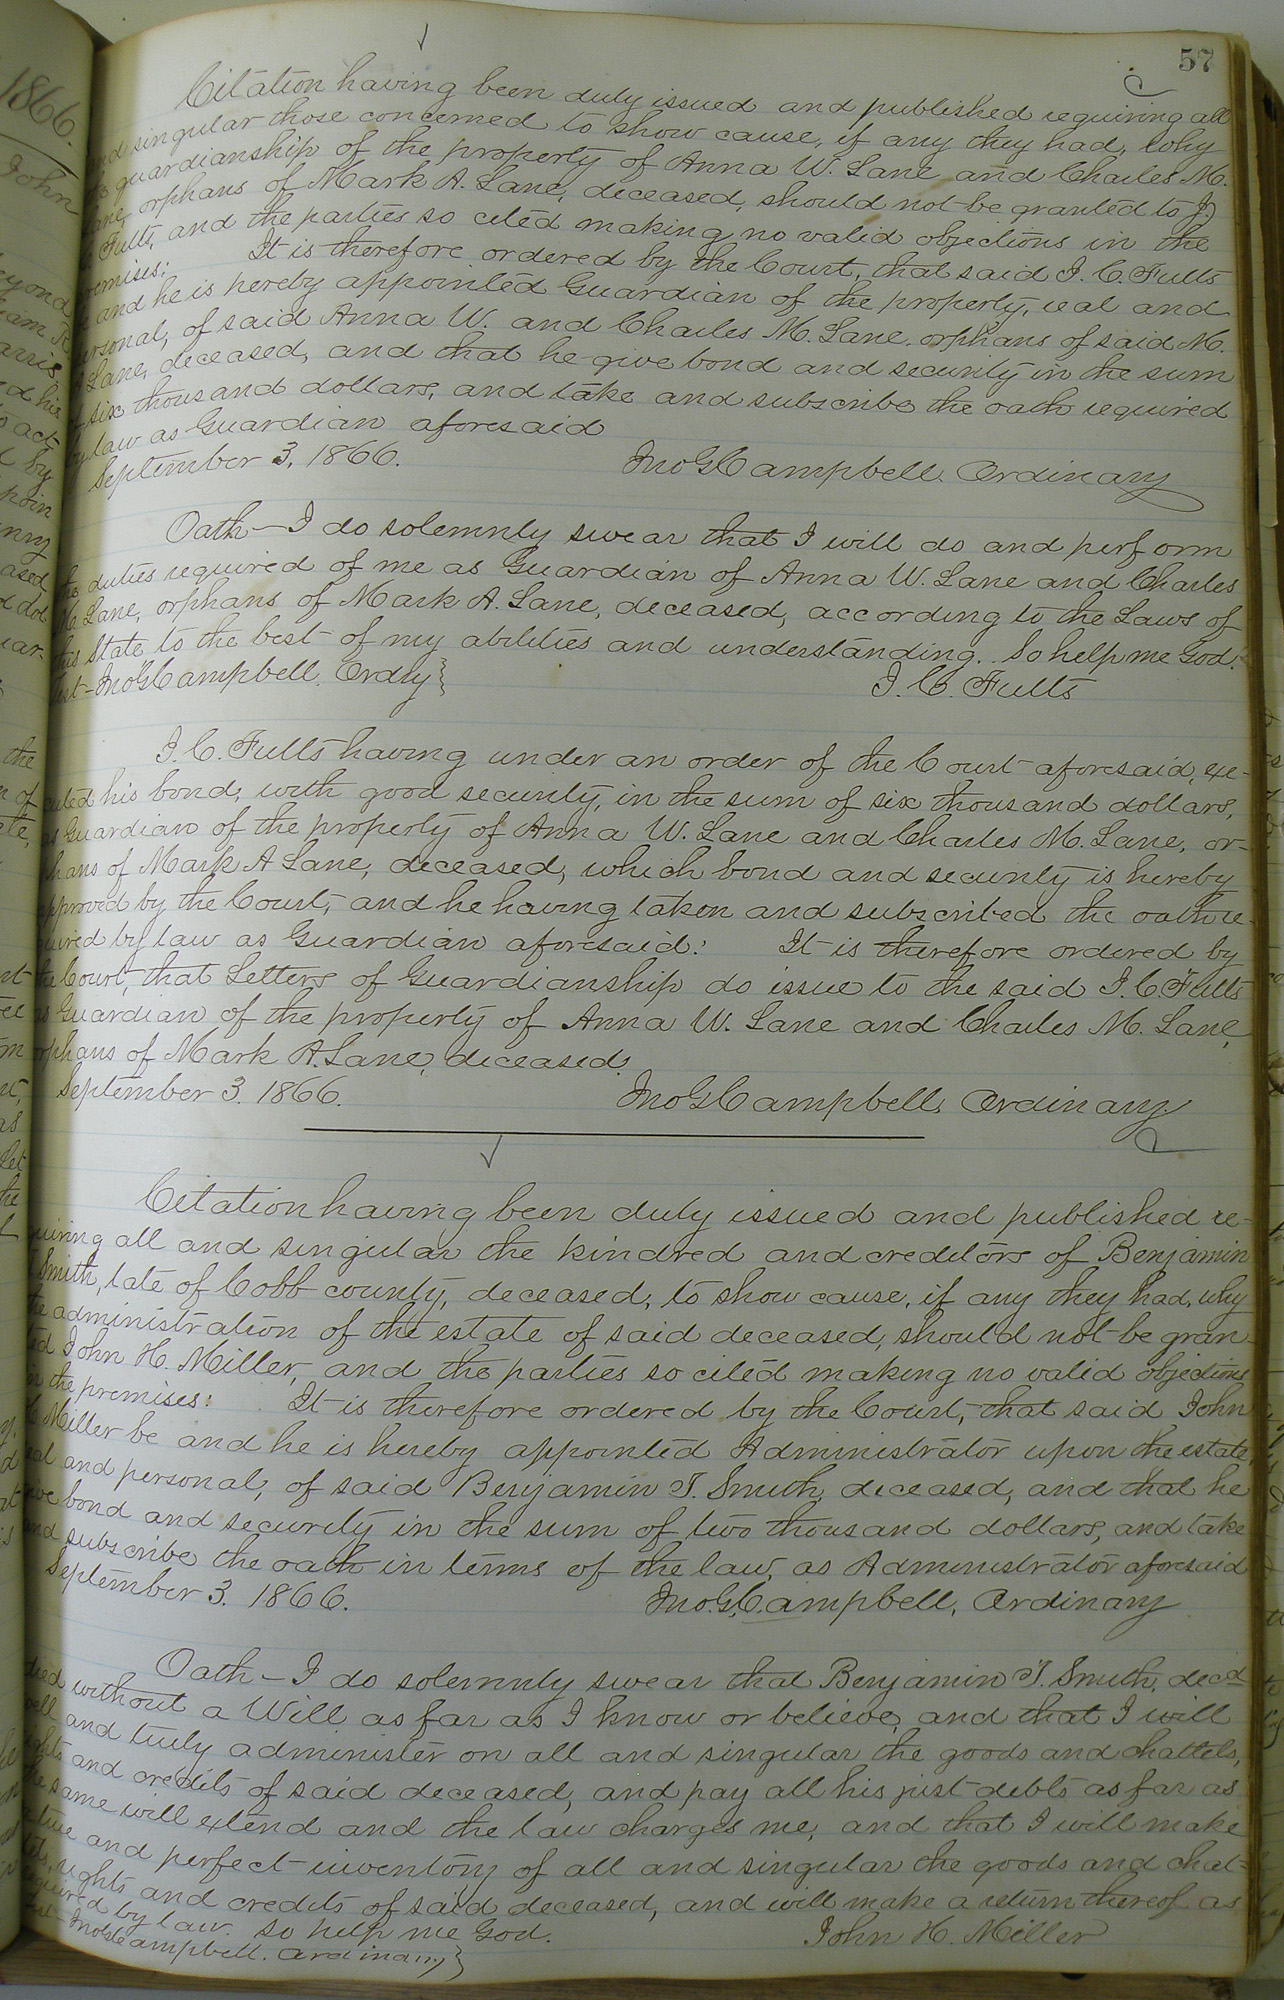 57
Citation having been duly issued and published requiring all
and singular those concerned to show cause, if any they had, why
guardianship of the property of Anna W. Lane and Charles M.
Lane, orphans of Mark A. Lane, deceased, should not be granted to J.
C. Fults, and the parties so cited making no valid objections in the
premises: It is therefore ordered by the Court, that said J. C. Fults
be and he is hereby appointed Guardian of the property, real and
personal, of said Anna W. and Charles M. Lane, orphans of said M.
A. Lane, deceased, and that he give bond and security in the sum
of six thousand dollars, and take and subscribe the oath required
by law as Guardian aforesaid
September 3, 1866. Jno G Campbell. Ordinary
Oath - I do solemnly swear that I will do and perform
the duties required of me as Guardian of Anna W. Lane and Charles
M. Lane, orphans of Mark A. Lane, deceased, according to the Laws of
this State to the best of my abilities and understanding. So help me God.
Test - Jno G Campbell. Ordry } J. C. Fults
J. C. Fults having under an order of the Court aforesaid, exe-
cuted his bond, with good security, in the sum of six thousand dollars,
as Guardian of the property of Anna W. Lane and Charles M. Lane, or-
phans of Mark A Lane, deceased, which bond and security is hereby
approved by the Court, and he having taken and subscribed the oath re-
quired by law as Guardian aforesaid: It is therefore ordered by
the Court, that Letters of Guardianship do issue to the said J. C. Fults
as Guardian of the property of Anna W. Lane and Charles M. Lane,
orphans of Mark A. Lane, deceased.
September 3. 1866. Jno G Campbell, Ordinary
Citation having been duly issued and published re-
quiring all and singular the kindred and creditors of Benjamin
T. Smith, late of Cobb county, deceased, to show cause, if any they had, why
the administration of the estate of said deceased, should not be gran-
ted John H. Miller, and the parties so cited making no valid objections
in the premises: It is therefore ordered by the Court, that said John
H. Miller be and he is hereby appointed Administrator upon the estate,
real and personal, of said Benjamin T. Smith, deceased, and that he
give bond and security in the sum of two thousand dollars, and take
and subscribe the oath in terms of the law, as Administrator aforesaid
September 3. 1866. Jno. G. Campbell, Ordinary
Oath - I do solemnly swear that Benjamin T. Smith, decd
died without a Will as far as I know or believe, and that I will
well and truly administer on all and singular the goods and chattels,
rights and credits of said deceased, and pay all his just debts as far as
the same will extend and the law charges me, and that I will make
true and perfect inventory of all and singular the goods and chat-
tels, rights and credits of said deceased, and will make a return thereof as
required by law. So help me God. John H. Miller
Test - Jno G Campbell. Ordinary }